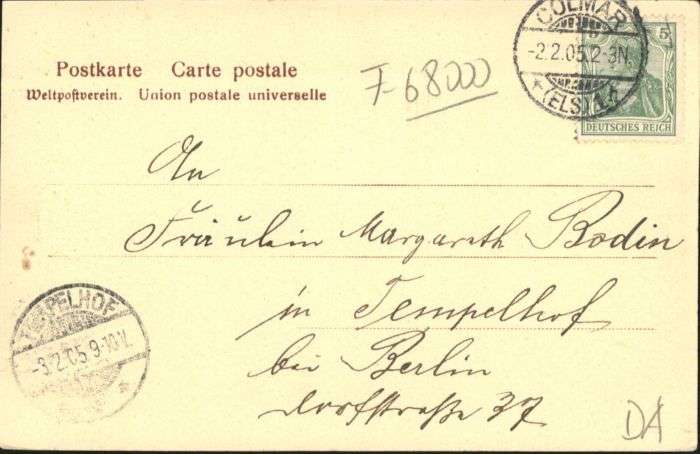 COLMAR
-2.2.05.2-3N.
(ELS)1.
5
DEUTSCHES REICH
Postkarte Carte postale
Weltpostverein. Union postale universelle
F-68000
An
Fräulein Margareth Bodin
in Tempelhof
bei Berlin
Dorfstraße 37
TEMPELHOF
-3.2.05.9-10V.
DA